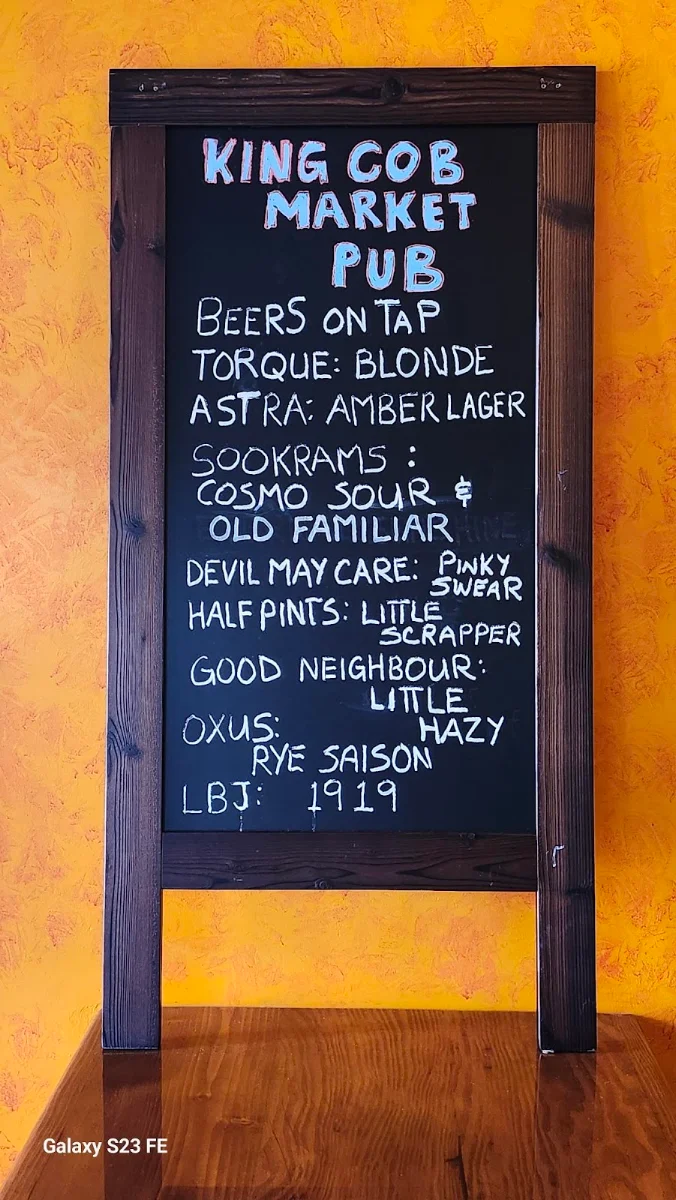 KING COB
MARKET
PUB
BEERS ON TAP
TORQUE: BLONDE
ASTRA: AMBER LAGER
SOOKRAMS :
COSMO SOUR &
OLD FAMILIAR
DEVIL MAY CARE: PINKY
SWEAR
HALF PINTS: LITTLE
SCRAPPER
GOOD NEIGHBOUR:
LITTLE
HAZY
OXUS:
RYE SAISON
LBJ: 1919
Galaxy S23 FE